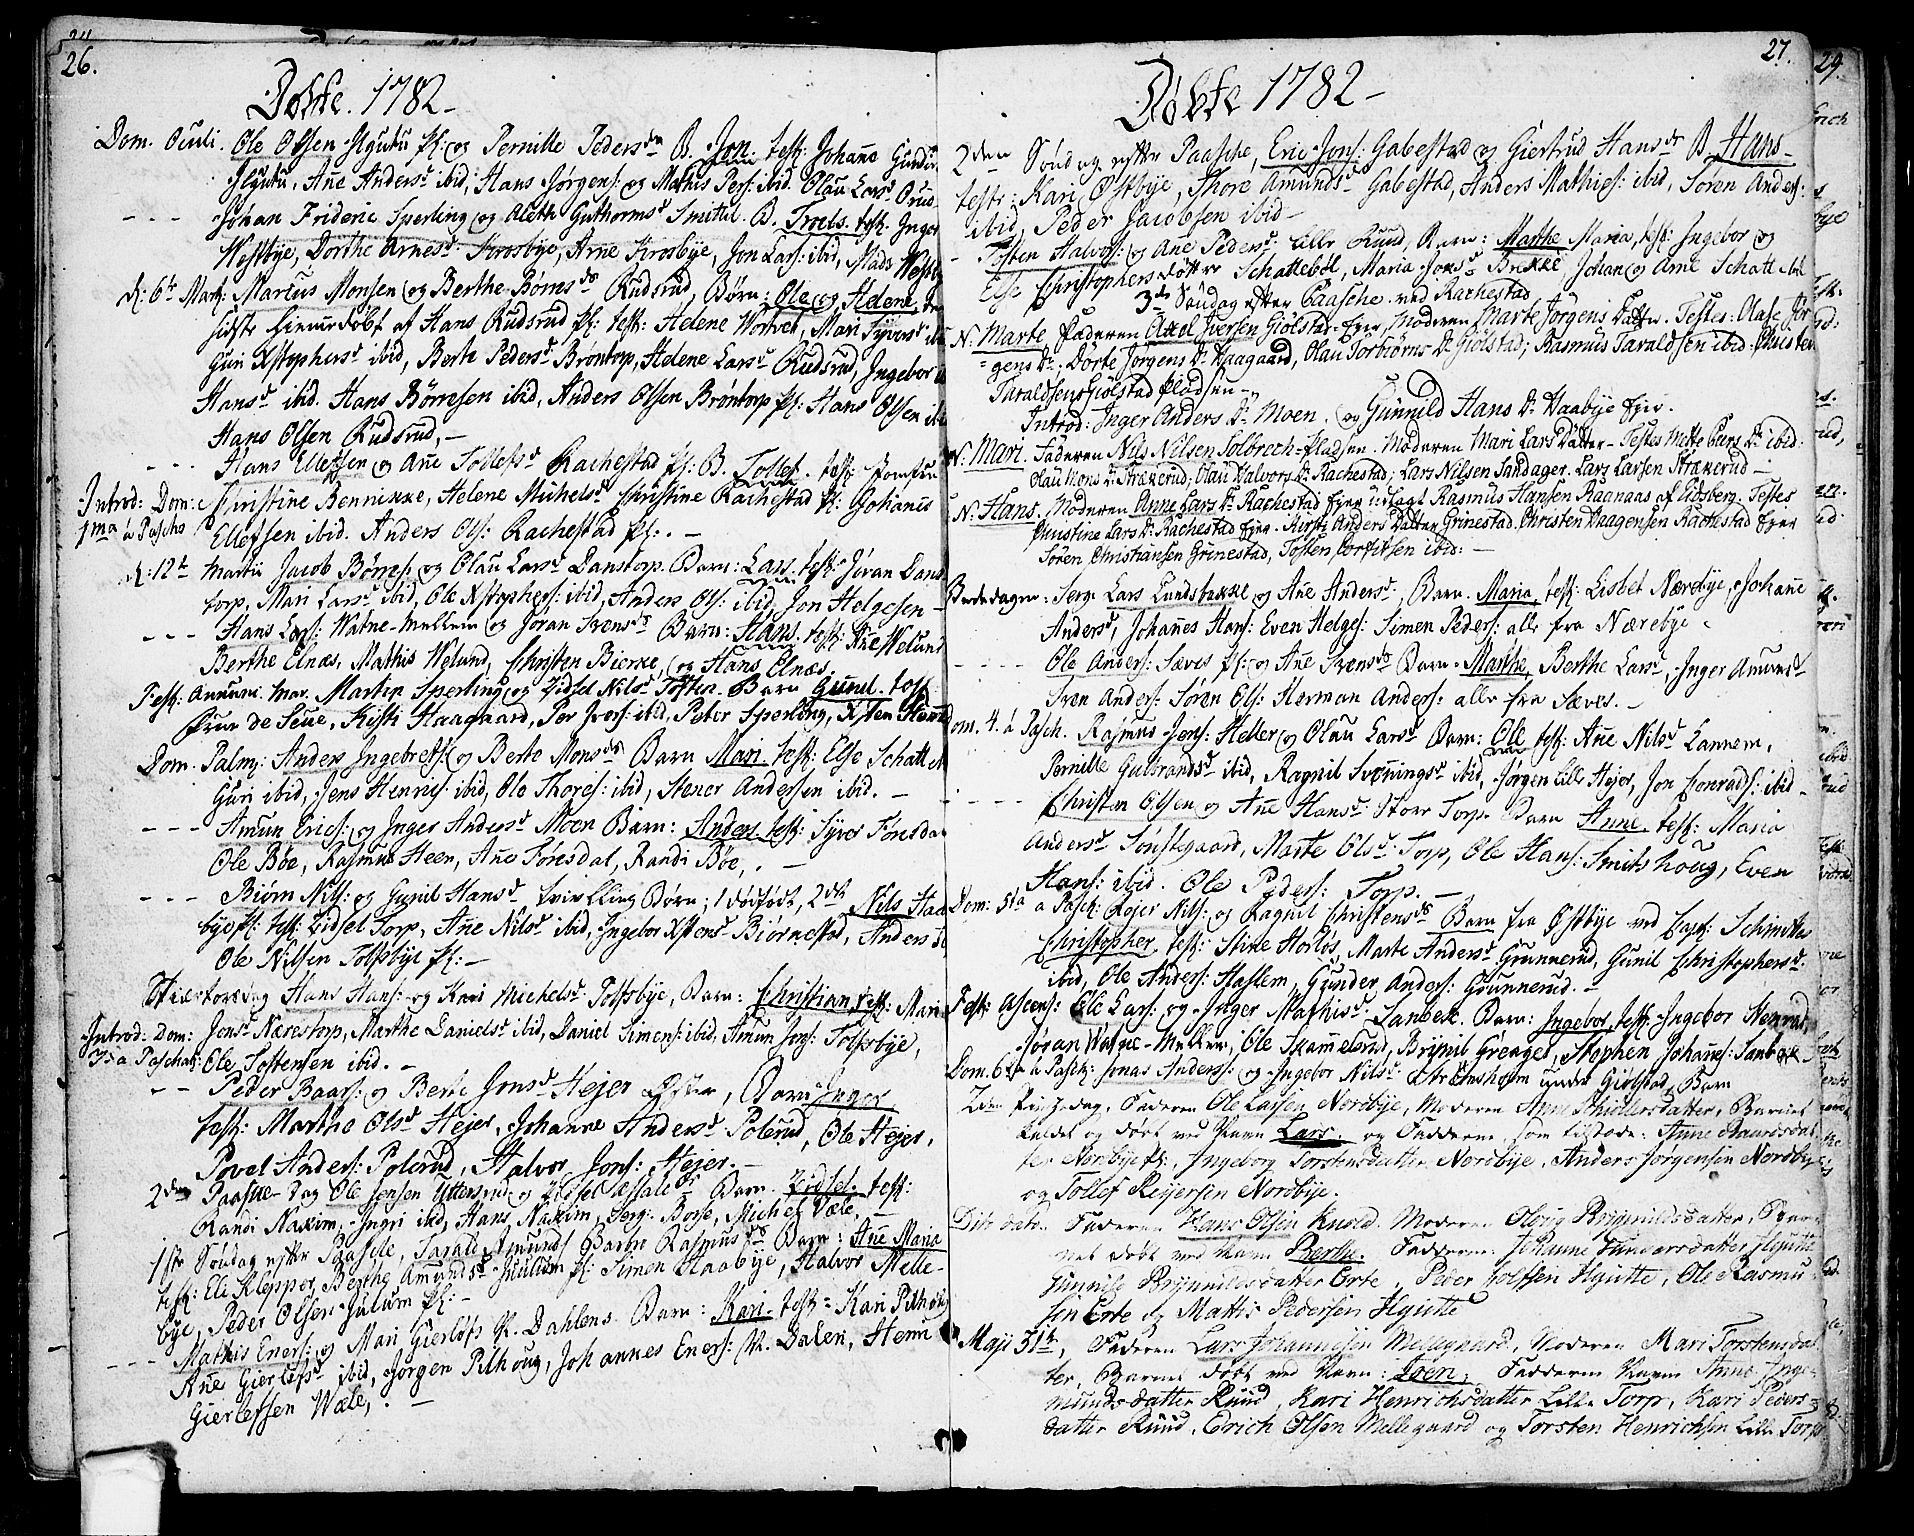 26.
Døbte. 1782 –
Dom. Oculi. Ole Olsen Hgutu pl: og Pernille Peders dr B. Jon. test: Johane Gunder
Hgutu, Ane Anders d ibid, Hans Jørgens: og Mathis Pers: ibid. Olau Lars d
– – – Johan Frideric Sperling og Aleth Guthorms d Smittel. B. Troels. test: Inger
Westbye, Dorthe Arnes d: Krosbye, Arne Krosbye, Jon Lars: ibid, Mads Westby
d: 6t Martj: Marcus Monsen og Berthe Børres dr Rudsrud, Børn: Ole og Helene,
sidste hiemmedøbt af Hans Rudsrud pl: test: Helene Wortvet, Mari Syvers d
Guri Xstophers d ibid, Berte Peders d Brøntorp, Helene Lars d Rudsrud, Ingebor
Hans d ibid. Hans Børresen ibid, Anders Olsen Brøntorp pl: Hans Olsen ibid
Hans Olsen Rudsrud, –
– – – Hans Ellefsen og Ane Tollefs d Rachestad pl: B. Tollef. test:
Introd: Dom: Christine Bennikke, Helene Michels d Christine Rachestad pl: Johanis
1ma a Pascho Ellefsen ibid. Anders Ols: Rachestad pl: . –
d: 12t Martii Jacob Børres: og Olau Lars d Danstorp. Barn: Lars. test: Jøran Dans
torp, Mari Lars d ibid, Ole Xstophers: ibid, Anders Ols: ibid, Jon Helgesen –
– – – Hans Lars: Watne-Mellem og Jøran Svens dr Barn: Hans. test: Ane Welund
Berthe Elnæs, Mathis Welund, Christen Bierke, og Hans Elnæs.
Fest: Annunc. Mar. Martin Sperling og Zidsel Nils d Toften. Barn Gunil. test:
Frue de Seue, Kisti Haagaard, Per Ivers: ibid, Peter Sperling, Xsten
Dom. Palm: Anders Ingebrets: og Berte Mons dr Barn Mari. test: Else Schatt
Guri ibid, Jens Henrics: ibid, Ole Thores: ibid, Stener Andersen ibid. –
– – – Amun Erics: og Inger Anders d Moen Barn: Anders. test: Syver Foresdal
Ole Bøe, Rasmus Heen, Ane Foresdal, Randi Bøe, . –
– – – Biørn Nils: og Gunil Hans d tvilling Børn; 1 dødfødt, 2det Nils Haa
bye pl: test: Zidsel Torp, Ane Nils d ibid, Ingebor Xstens d Biørnestad, Anders
Ole Nilsen Tolfsbye pl: –
Skiertorsdag Hans Hans: og Kari Michels d Tolfsbye, Barn: Christian, test: Mari
Introd: Dom: Jons d Nærestorp, Marthe Daniels d ibid, Daniel Simens: ibid, Amun Jons: Tolfsbye,
a Paschat: Ole Tostensen ibid. –
– – Peder Baars: og Berte Jons d Hejer Østre, Barn Inger
test: Marthe Ols d Hejer, Johanne Anders d Polerud, Ole Hejer,
Povel Anders: Polerud, Halvor Jons: Hejer. –
2den Paaske-Dag Ole Jensen Uttersrud og Zidsel Barn. Zidsel. test:
Randi Naxim, Ingri ibid, Hans Naxim, Serg: Borse, Michel Væle, –
1ste Søndag efter Paasche, Tarald Amunds: Baron Rasmus dr Barn: Ane Maria
test: Eli Klepper, Berthe Amunds d Juulum pl: Simen Haabye, Halvor Melle-
bye, Peder Olsen Julum pl: –
– – – Mathis Eners: og Mari Gierløfs d Dahlens. Barn: Kari. test: Kari Pilhoug
Ane Gierlefs d ibid, Jørgen Pilhoug, Johannes Eners: Dalen, Henri
Gierlefsen Wæle, . –
27.
Døbte 1782 –
2den Søndag efter Paasche, Eric Jons: Gabestad og Giertrud Hans dr B Hans –
teste: Kari Østbye, Thore Amunds d Gabestad, Anders Mathies: ibid, Søren Anders:
ibid, Peder Jacobsen ibid –
– Tosten Halvors: og Ane Peders d: Lille Ruud, Barn: Marthe Maria, test: Ingebor og
Else Christophers døttre Schattebøl, Maria Jons d Brekke, Johan og Arne Schattebøl
3de Søndag efter Paasche ved Rachestad
N: Marte, Faderen Axel Iversen Giølstad-Ejer, Moderen Marte Jørgens Datter. Testes: Olase Jør
= gens Dr; Dorte Jørgens Dr Haagaard, Olau Torbiørns Dr Giølstad; Rasmus Taraldsen ibid. Christen
Taraldsens Giølstad Pladsen –
Introd: Inger Anders Dr Moen, og Gunnild Hans Dr Haabye Ejer.
N: Mari. Faderen Nils Nilsen Solbrech-Pladsen. Moderen Mari Lars Datter – Testes Mette Lars Dr ibid:
Olau Mons Dr Strækerud; Olau Halvors Dr Rachestad; Lars Nilsen Landager. Lars Larsen Strækerud –
N: Hans. Moderen Anne Lars Dr Rachestad Ejer udlagt Rasmus Hansen Raanaas af Eidsberg. Testes
Christine Lars Dr Rachestad Ejer. Kirsti Anders Datter Grinestad, Christen Haagensen Rachestad Ejer
Søren Christiansen Grinestad, Tosten ibid: –
Bededagen: Serg: Lars Lundebakke og Ane Anders d, Barn. Maria, test: Lisbet Nærebye, Johane
Anders d, Johanes Hans: Even Helges: Simen Peders: alle fra Nærebye –
– – – – Ole Anders: Sæves pl: og Ane Svens dr Barn. Marthe, Berthe Lars d, Inger Anders d
Sven Anders: Søren Ols: Herman Anders: alle fra Sæves. –
Dom. 4. a Pasch. Rasmus Jens: Heller og Olau Lars d Barn: Ole test: Ane Nils d Lannem,
Pernille Gulbrands d ibid, Ragnil Svennings d ibid, Jørgen Lille Hejer, Jon Conrads: ibid –
– – – – Christen Olsen og Ane Hans d: Store Torp. Barn Anne. test: Maria
Anders d Sønstegaard, Marte Ols d Torp, Ole Hans: Smitshoug, Even
Hans: ibid. Ole Peders: Torp. –
Dom: 5ta a Pasch: Rejer Nils: og Ragnil Christens dr Barn fra Østbye ved Capt: Schmittes
Christopher, test: Stine Horløs, Marte Anders d Grunnerud, Gunil Christophers d
ibid, Ole Anders: Haslem, Gunder Anders: Grunnerud. –
Fest: Ascens: Ole Lars: og Inger Mathis d: Sanbek. Barn: Ingebor, test: Ingebor Nenrud,
Jøran Watne-Mellem, Ole Skamelsrud, Brynil Greager, Stephen Johanes: Sanbek.
Dom. 6ta a Pasch: Jonas Anders: og Ingebor Nils d: Strømsholm under Giølstad, Barn
2den Pintzedag, Faderen Ole Larsen Nordbye, Moderen Anne Schiøllersdatter, Barnet
kaldet og døbt ved Navn Lars. og Fadderne, som tilstode: Anne Baardsdat
ter Nordbye pl:, Ingeborg Torstensdatter Nordbye, Anders Jørgensen Nordbye
og Tollef Reyersen Nordbye.
Dito dato. Faderen Hans Olsen Knold. Moderen Oloug Brynnildsdatter, Bar-
net døbt ved Navn Berthe. Fadderne: Johanne Gunnersdatter Hgutte
Gunnile Brynnildsdatter Erte, Peder Jolfsen Hgutte, Ole Rasmu-
sen Erte og Mattis Pedersen Hgutte
Maji 31te, Faderen Lars Johannesen Mellegaard, Moderen Mari Torstensdat
ter, Barnet døbt ved Navn: Iver, Fadderne Navne Anne Inge-
mundsdatter Ruud, Kari Henrichsdatter Lille Torp, Kari Peders-
datter Ruud, Erich Olsen Mellegaard og Torsten Henrichsen Lille Torp
29.